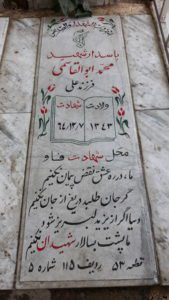 پاسدار شهید
محمد ابوالقاسمی
فرزند علی
ولادت شهادت
۱۳۴۳ ۶۴/۱۲/۷
محل شهادت فاو
ما در ره عشق نقض پیمان نکنیم
گر جان طلبد دریغ از جان نکنیم
دنیا اگر از یزید لبریز شود
ما پشت به سالار شهیدان نکنیم
قطعه ۵۳ ردیف ۱۱۵ شماره ۵